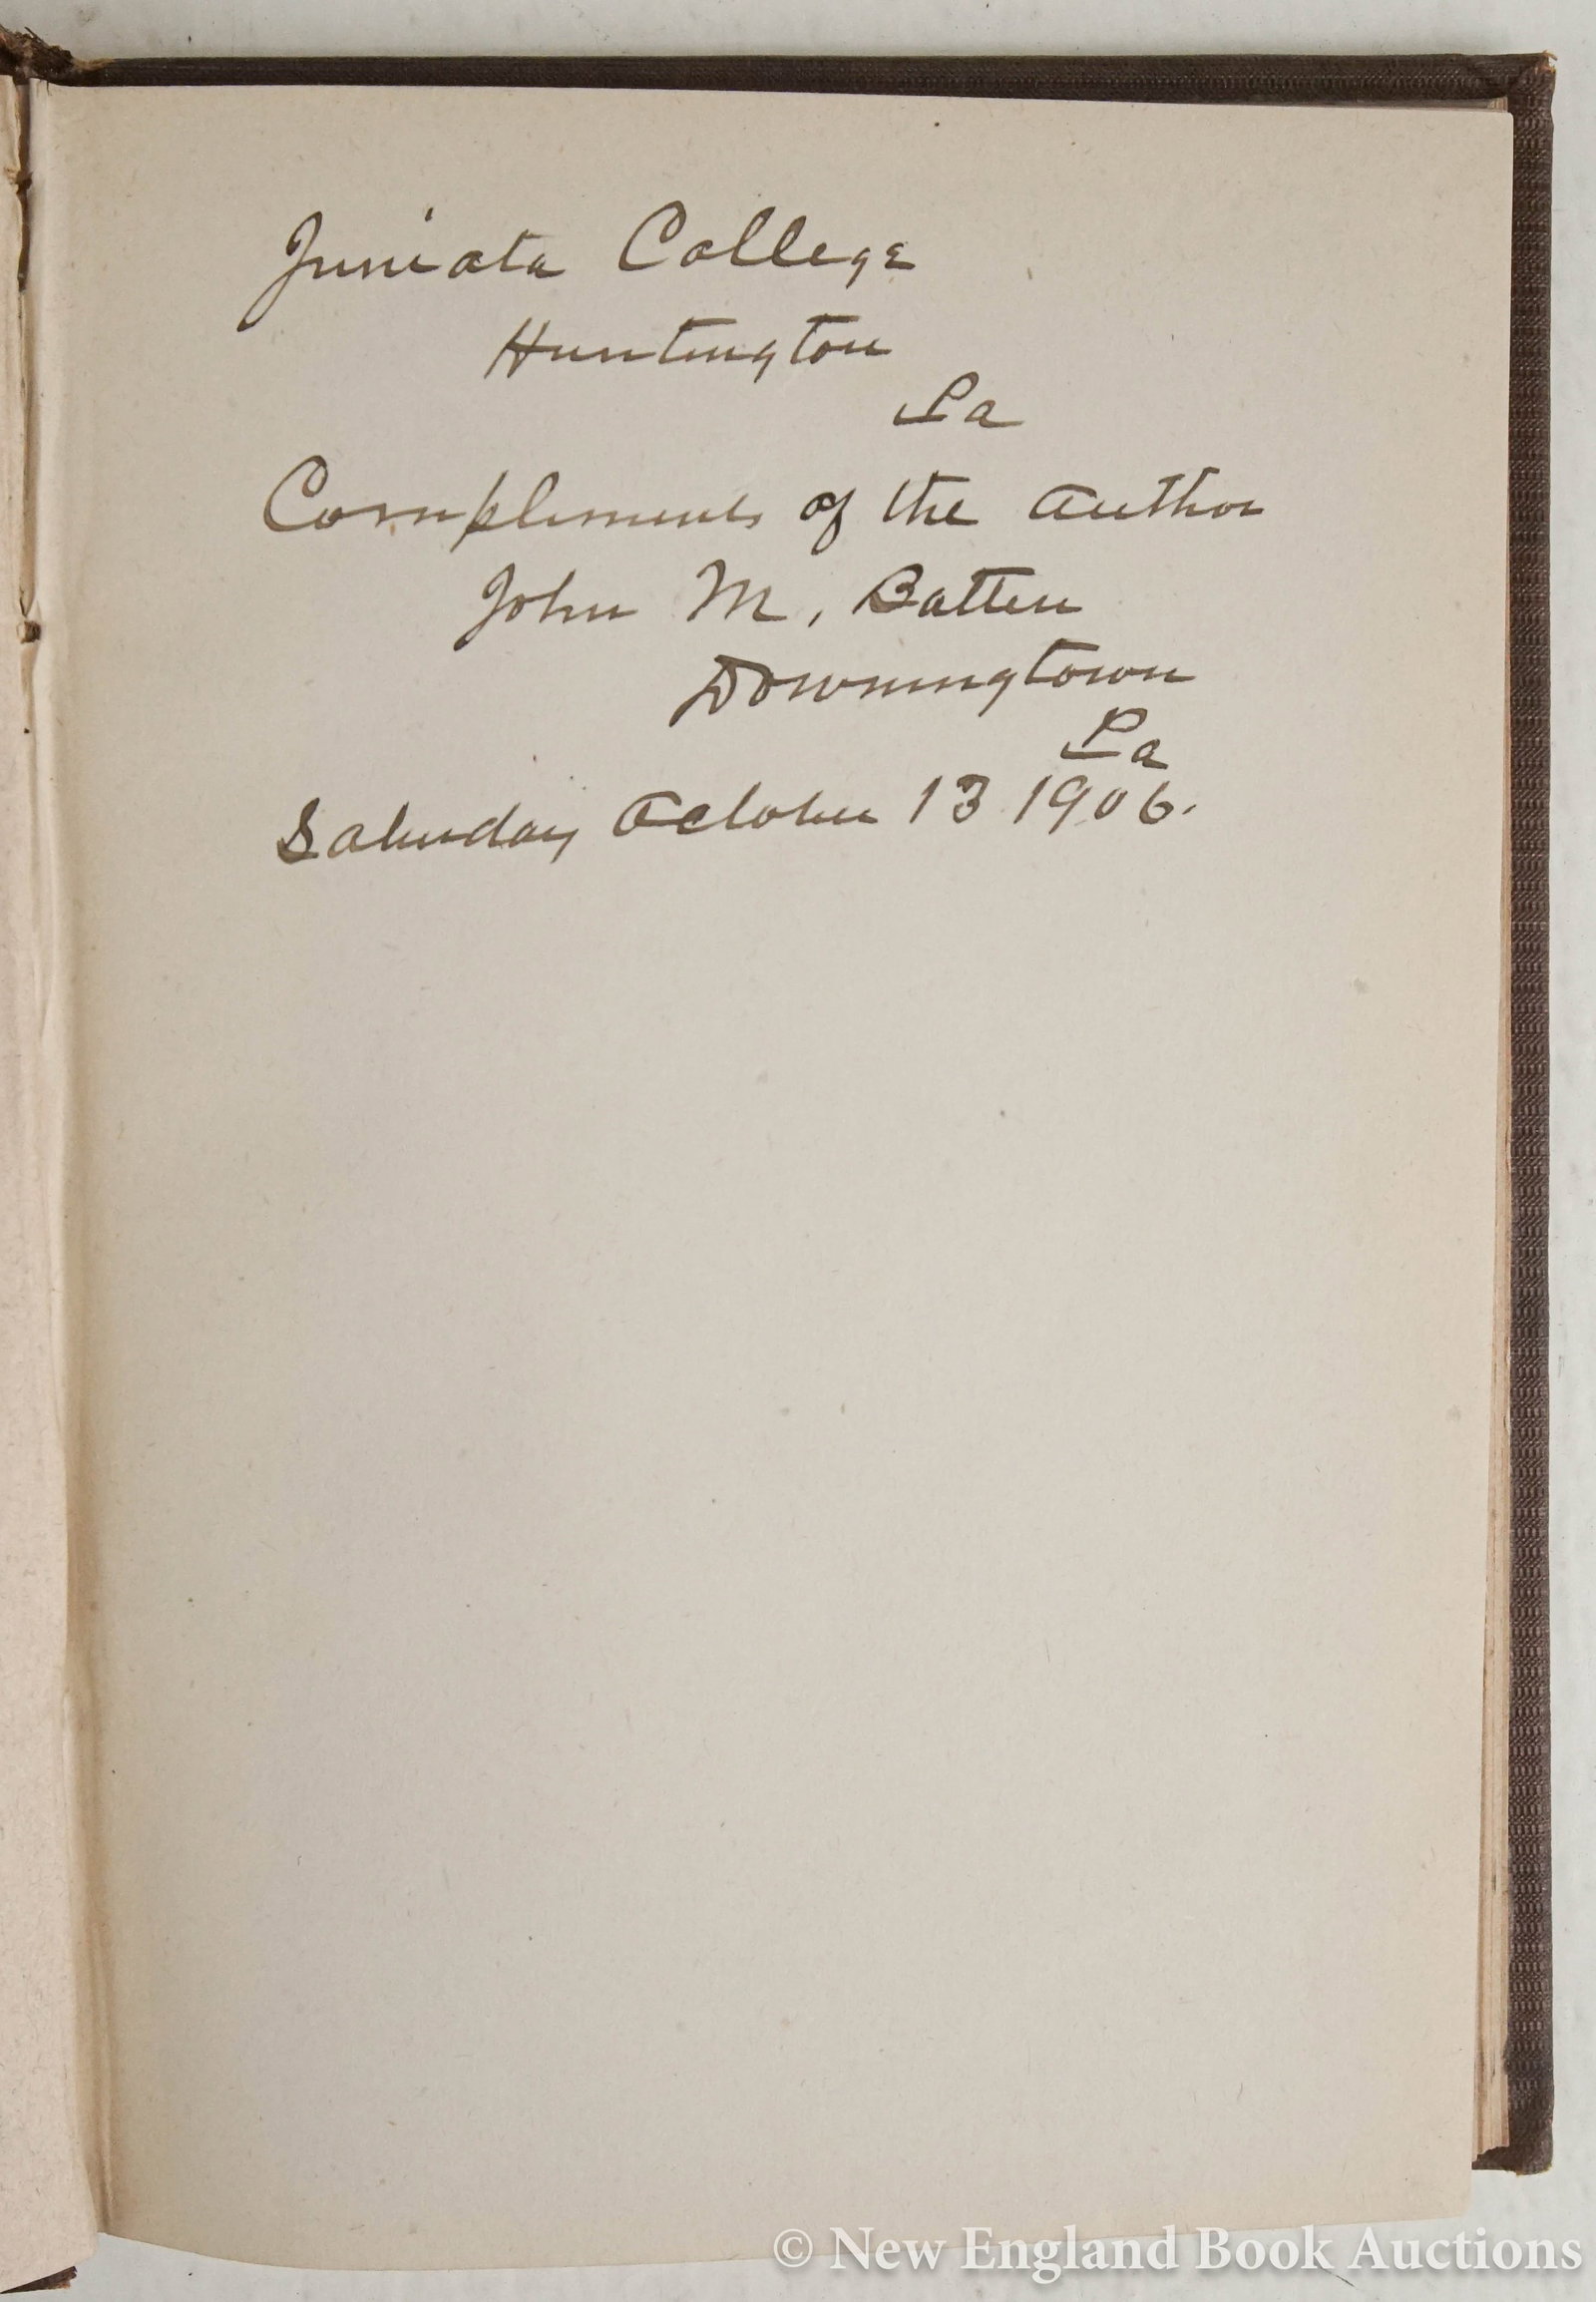 Juniata College
Huntington
Pa
Compliments of the Author
John M. Batten
Downingtown
Pa
Saturday October 13 1906.
© New England Book Auctions